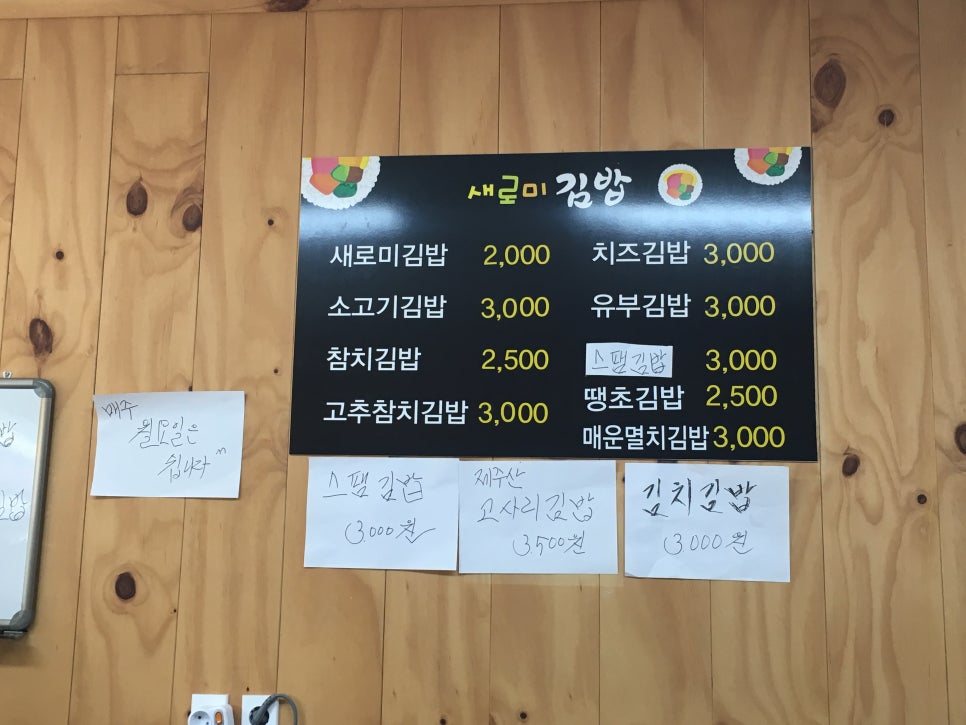 새로미 김밥
새로미김밥 2,000
소고기김밥 3,000
참치김밥 2,500
고추참치김밥 3,000
치즈김밥 3,000
유부김밥 3,000
스팸김밥 3,000
땡초김밥 2,500
매운멸치김밥 3,000
매주
월요일은
쉽니다
스팸김밥
3.000원
제주산
고사리김밥
3,500원
김치김밥
3000원
밥
김밥